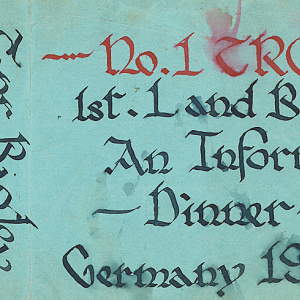 — No. 1 TRO
1st. L and B
An Infor
— Dinner —
Germany 19